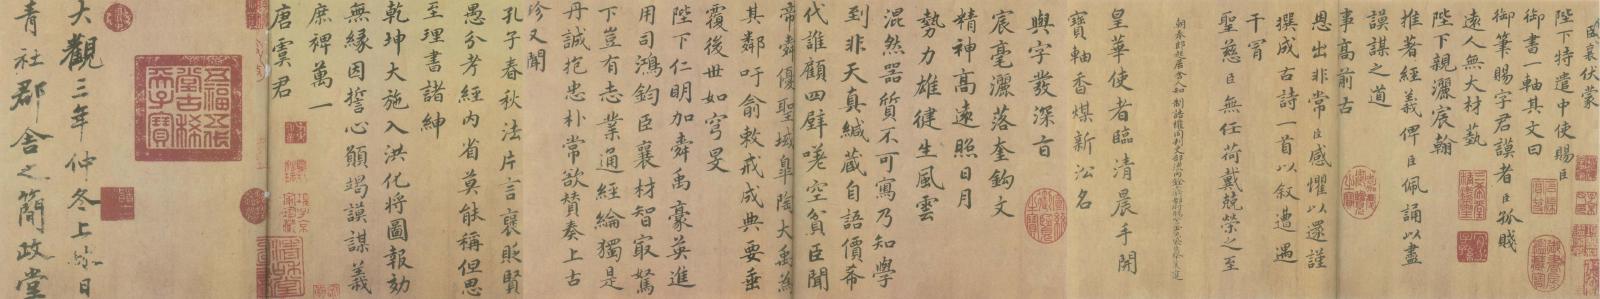 臣襄伏蒙
陛下特遣中使賜臣
御書一軸其文曰
御筆賜字君謨者臣孤賤
遠人無大材藝
陛下親灑宸翰
推著經義俾臣佩誦以盡
謨謀之道
事高前古
恩出非常臣感懼以還謹
撰成古詩一首以叙遭遇
干冐
聖慈臣無任荷戴兢榮之至
皇華使者臨清晨手開
寶軸香煤新沁名
與字發深旨
宸毫灑落奎鈎文
精神高遠照日月
勢力雄健生風雲
混然器質不可寫乃知學
到非天真緘藏自語價希
代誰顧四壁嗟空貧臣聞
帝舜優聖域皐陶大禹爲
其鄰吁俞敕戒成典要垂
覆後世如穹旻
陛下仁明加舜禹豪英進
用司鴻鈞臣襄材智㝡駑
下豈有志業通經綸獨是
丹誠抱忠朴常欲賛奏上古
珍又聞
孔子春秋法片言褒貶賢
愚分考經内省莫能稱但思
至理書諸紳
乾坤大施入洪化將圖報効
無縁因誓心願竭謨謀義
庶裨萬一
唐虞君
五福五代堂古稀天子寶
大觀三年仲冬上
日
青社郡舍之簡政堂